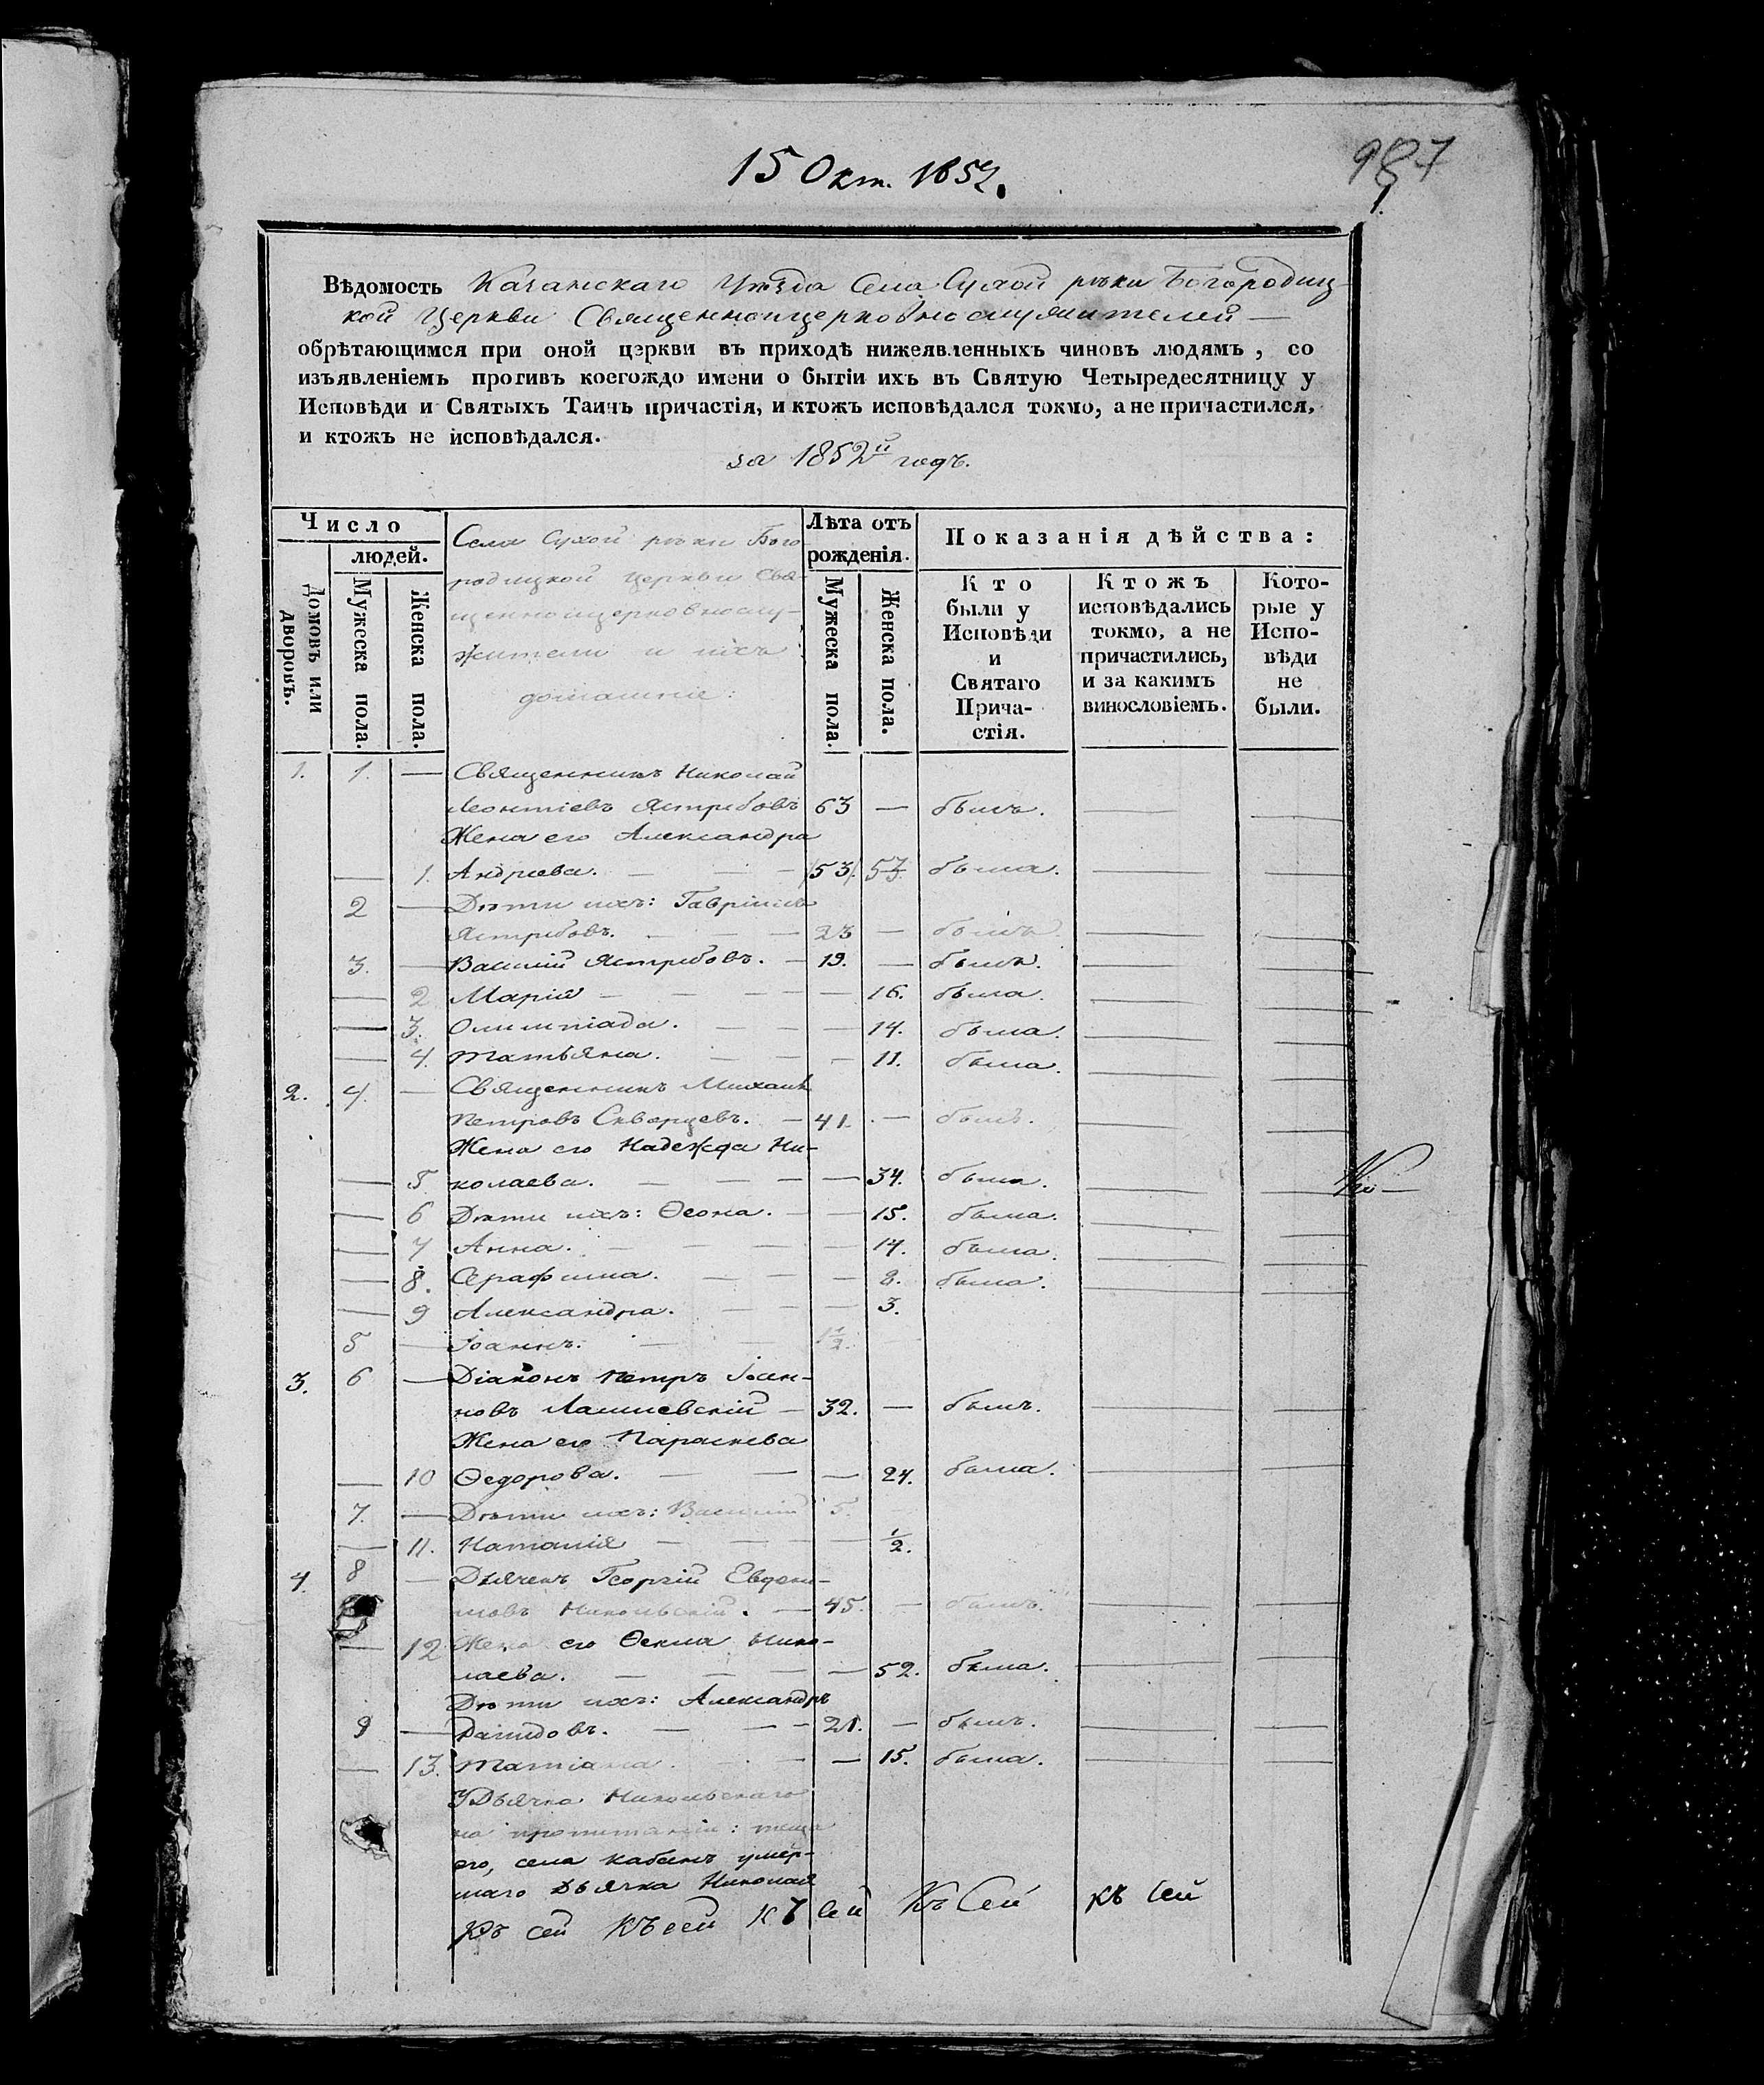 15 Окт. 1852.
987
1.
Вѣдомость Казанскаго Уѣзда Села Сухой рѣки Богородиц-
кой Церкви Священноицерковнослужителей —
обрѣтающимся при оной церкви въ приходѣ нижеявленныхъ чиновъ людямъ, со
изъявленіемъ противъ коегождо имени о бытіи ихъ въ Святую Четыредесятницу у
Исповѣди и Святыхъ Таинъ причастія, и ктожъ исповѣдался токмо, а не причастился,
и ктожъ не исповѣдался.
за 1852й годъ.
Число
людей.
Домовъ или дворовъ.
Мужеска пола.
Женска пола.
Села Сухой рѣки Бого-
родицкой церкви Свя-
щенноицерковнослу-
жители и ихъ
домашніе:
Лѣта отъ
рожденія.
Мужеска пола.
Женска пола.
Показанія дѣйства:
Кто
были у
Исповѣди
и
Святаго
Прича-
стія.
Ктожъ
исповѣдались
токмо, а не
причастились,
и за какимъ
винословіемъ.
Кото-
рые у
Испо-
вѣди
не
были.
1. 1. — Священникъ Николай
Леонтіевъ Ястребовъ 63 — былъ. — —
Жена его Александра
— 1. Андреева. — — — 53 53 была. — —
2 — Дѣти ихъ: Гавріилъ
Ястребовъ. — — — 23 — былъ. — —
3. — Василій Ястребовъ. — 19. — былъ. — —
— 2 Марія — — — — — 16. была. — —
— 3. Олимпіада. — — — — 14. была. — —
— 4. Татьяна. — — — — 11. была. — —
2. 4. — Священникъ Михаилъ
Петровъ Скворцевъ. — 41. — былъ. — —
Жена его Надежда Ни-
— 5 колаева. — — — — — 34. была. — —
— 6 Дѣти ихъ: Ѳеона. — — 15. была. — —
— 7 Анна. — — — — 14. была. — —
— 8. Серафима. — — — 8. была. — —
— 9 Александра. — — — 3.
5 — Іоаннъ. — — 1½.
3. 6 — Діаконъ Петръ Іоан-
новъ Лаишевскій — 32. — былъ. — —
Жена его Параскева
— 10 Ѳедорова. — — — 24. была. — —
7. — Дѣти ихъ: Василій 5.
— 11. Наталія — — — — ½.
4. 8 — Дьячекъ Георгій Евдоки-
мовъ Никольскій. — 45. — былъ. — —
— 12 Жена его Ѳекла Нико-
лаева. — — — — 52. была. — —
Дѣти ихъ: Александръ
9 — Давидовъ. — — — 21. — былъ. — —
— 13. Татіана. — — — 15. была. — —
У Дьячка Никольскаго
на пропитаніи: теща
его, села Кабанъ умер-
шаго Дьячка Николая
Къ сей Къ сей Къ сей Къ Сей къ сей